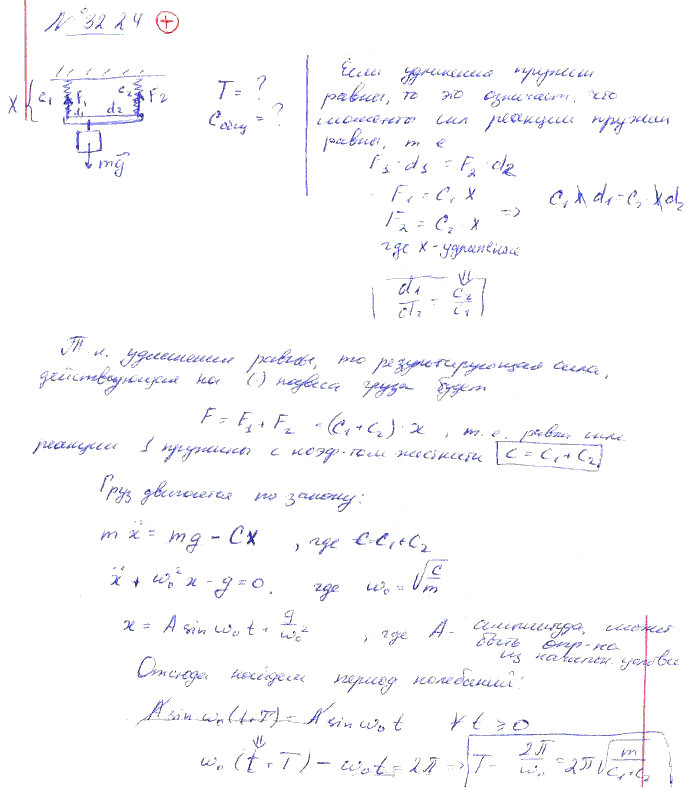 № 3224 +
X { C₁ F₁ d₁ d₂ C₂ F₂
mg
T = ?
Cобщ = ?
Если удлинения пружин
равны, то это означает, что
моменты сил реакции пружин
равны, т е
F₁ · d₁ = F₂ · d₂
F₁ = C₁ X
F₂ = C₂ · X
=> C₁ X d₁ = C₂ X d₂
где X - удлинение
⇓
d₁/d₂ = C₂/C₁
Т.к. удлинения равны, то результирующая сила,
действующая на (·) подвеса груза будет
F = F₁ + F₂ = (C₁ + C₂) · x , т.е. равна силе
реакции 1 пружины с коэф-том жесткости C = C₁ + C₂
Груз двигается по закону:
m ẍ = mg - CX , где C = C₁ + C₂
ẍ + ω₀² x - g = 0, где ω₀ = √(C/m)
x = A sin ω₀ t + g/ω₀² , где A - амплитуда, может
быть опр-на
из начальн. условий
Отсюда найдем период колебаний:
A sin ω₀ (t+T) = A sin ω₀ t ∀ t ≥ 0
⇓
ω₀ (t + T) - ω₀ t = 2π => T = 2π/ω₀ = 2π √(m/(C₁ + C₂))